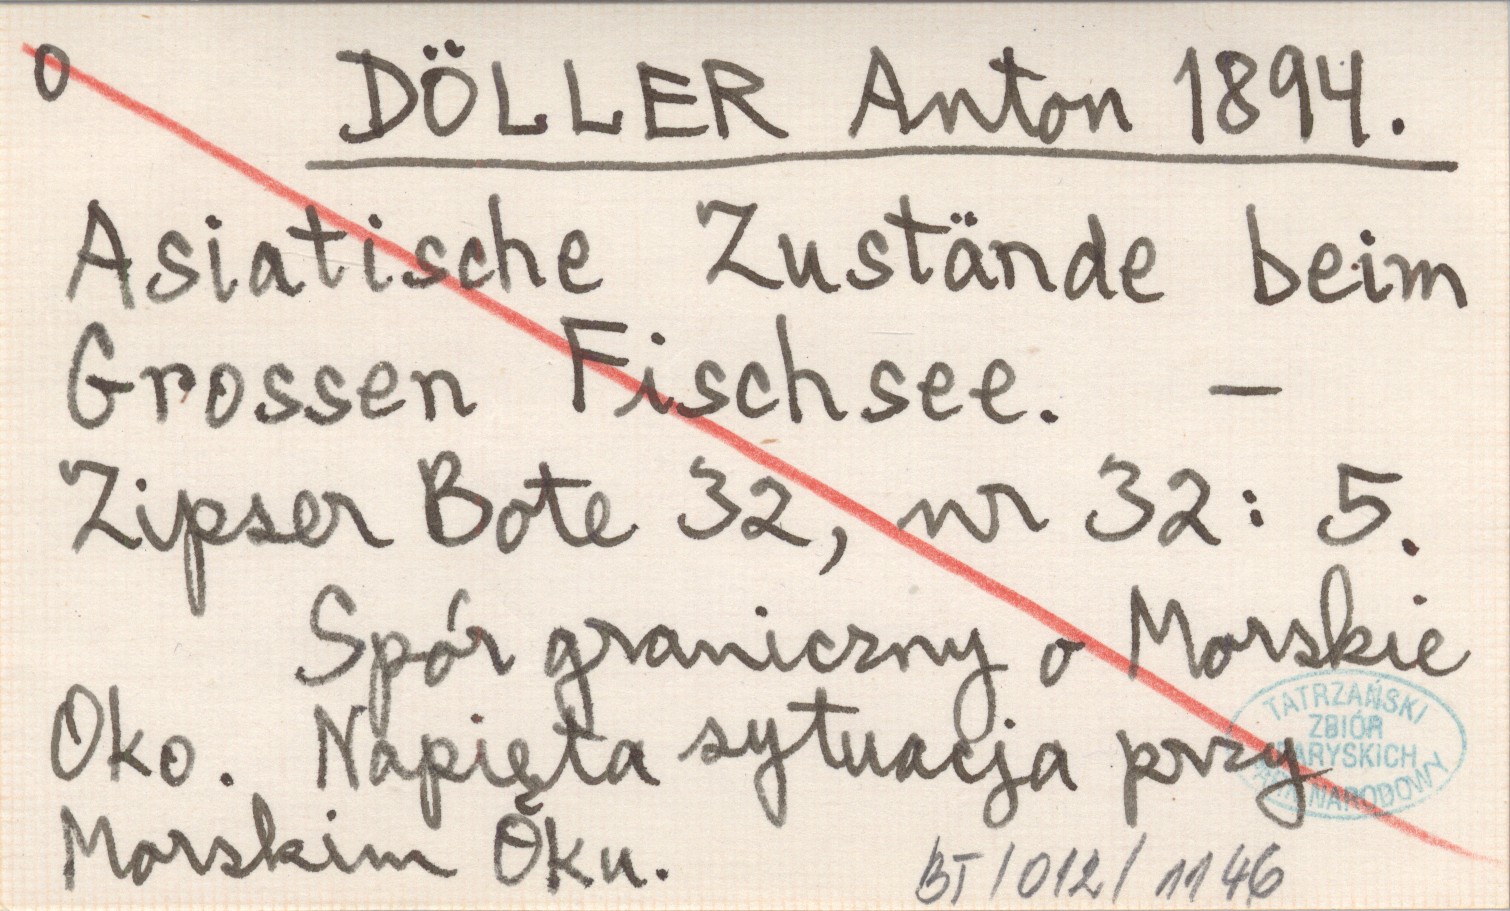 O DÖLLER Anton 1894.
Asiatische Zustände beim
Grossen Fischsee. —
Zipser Bote 32, nr 32: 5.
Spór graniczny o Morskie
Oko. Napięta sytuacja przy
Morskim Oku.
TATRZAŃSKI
ZBIÓR
PARYSKICH
NARODOWY
BT/012/1146